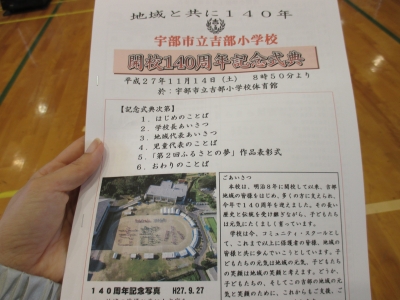 地域と共に140年
宇部市立吉部小学校
開校140周年記念式典
平成27年11月14日（土） 8時50分より
於：宇部市立吉部小学校体育館
【記念式典次第】
1．はじめのことば
2．学校長あいさつ
3．地域代表あいさつ
4．児童代表のことば
5．「第2回ふるさとの夢」作品表彰式
6．おわりのことば
ごあいさつ
本校は、明治8年に開校して以来、吉部
地域の皆様をはじめ、多くの方に支えられ、
今年で140周年を迎えました。その長い
歴史と伝統を受け継ぎながら、子どもたち
は元気にたくましく育っています。
学校は今、コミュニティ・スクールとし
て、これまで以上に保護者の皆様、地域の皆
様と共に歩んでいこうとしています。子
どもたちの元気は地域の元気、子どもたち
の笑顔は地域の笑顔と考えます。どうか、
子どもたちの、そしてこの吉部の地域の元
気と笑顔のために、これからもご支援、ご
140周年記念写真 H27.9.27